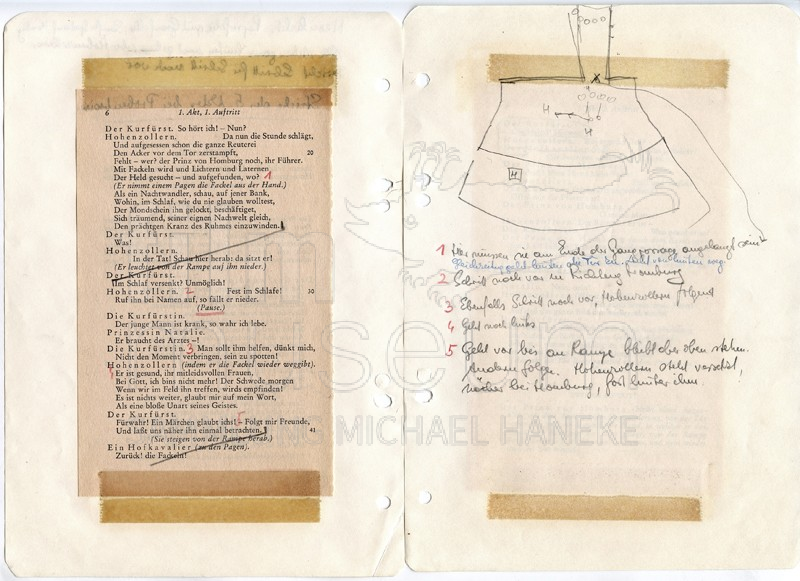 6 1. Akt, 1. Auftritt
Der Kurfürst. So hört ich! – Nun?
Hohenzollern. Da nun die Stunde schlägt,
Und aufgesessen schon die ganze Reuterei
Den Acker vor dem Tor zerstampft, 20
Fehlt – wer? der Prinz von Homburg noch, ihr Führer.
Mit Fackeln wird und Lichtern und Laternen
Der Held gesucht – und aufgefunden, wo? 1
(Er nimmt einem Pagen die Fackel aus der Hand.)
Als ein Nachtwandler, schau, auf jener Bank,
Wohin, im Schlaf, wie du nie glauben wolltest,
Der Mondschein ihn gelockt, beschäftiget,
Sich träumend, seiner eignen Nachwelt gleich,
Den prächtgen Kranz des Ruhmes einzuwinden.
Der Kurfürst.
Was!
Hohenzollern.
In der Tat! Schau hier herab: da sitzt er!
(Er leuchtet von der Rampe auf ihn nieder.)
Der Kurfürst.
Im Schlaf versenkt? Unmöglich!
Hohenzollern. 2 Fest im Schlafe! 30
Ruf ihn bei Namen auf, so fällt er nieder.
(Pause.)
Die Kurfürstin.
Der junge Mann ist krank, so wahr ich lebe.
Prinzessin Natalie.
Er braucht des Arztes –!
Die Kurfürstin. 3 Man sollt ihm helfen, dünkt mich,
Nicht den Moment verbringen, sein zu spotten!
Hohenzollern (indem er die Fackel wieder weggibt).
Er ist gesund, ihr mitleidsvollen Frauen,
Bei Gott, ich bins nicht mehr! Der Schwede morgen
Wenn wir im Feld ihn treffen, wirds empfinden!
Es ist nichts weiter, glaubt mir auf mein Wort,
Als eine bloße Unart seines Geistes.
Der Kurfürst.
Fürwahr! Ein Märchen glaubt ichs! 5 Folgt mir Freunde,
Und laßt uns näher ihn einmal betrachten. 41
(Sie steigen von der Rampe herab.)
Ein Hofkavalier (zu den Pagen).
Zurück! die Fackeln!
H
H
H
1 Hier müssen sie am Ende der angelangt sein
2 Schritt noch vor in Richtung Homburg
3 Ebenfalls Schritt noch vor, Hohenzollern folgend
4 Geht nach links
5 Geht vor bis an Rampe bleibt aber oben stehn.
Andern folgen. Hohenzollern steht versetzt,
näher bei Homburg, fast hinter ihm.
MICHAEL HANEKE